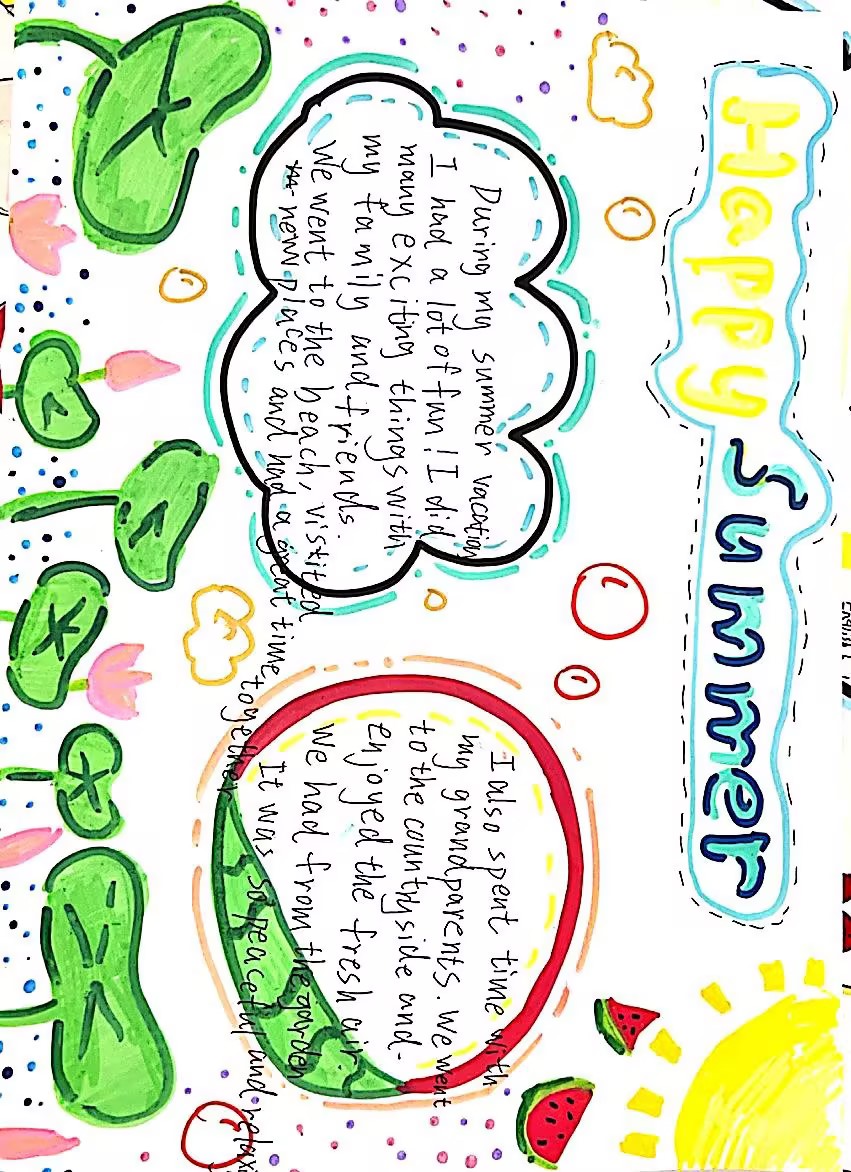 Happy Summer
During my summer vacation
I had a lot of fun! I did
many exciting things with
my family and friends.
We went to the beach, visited
new places and had a great time together
I also spent time with
my grandparents. We went
to the countryside and
enjoyed the fresh air.
We had from the garden
It was so peaceful and relax